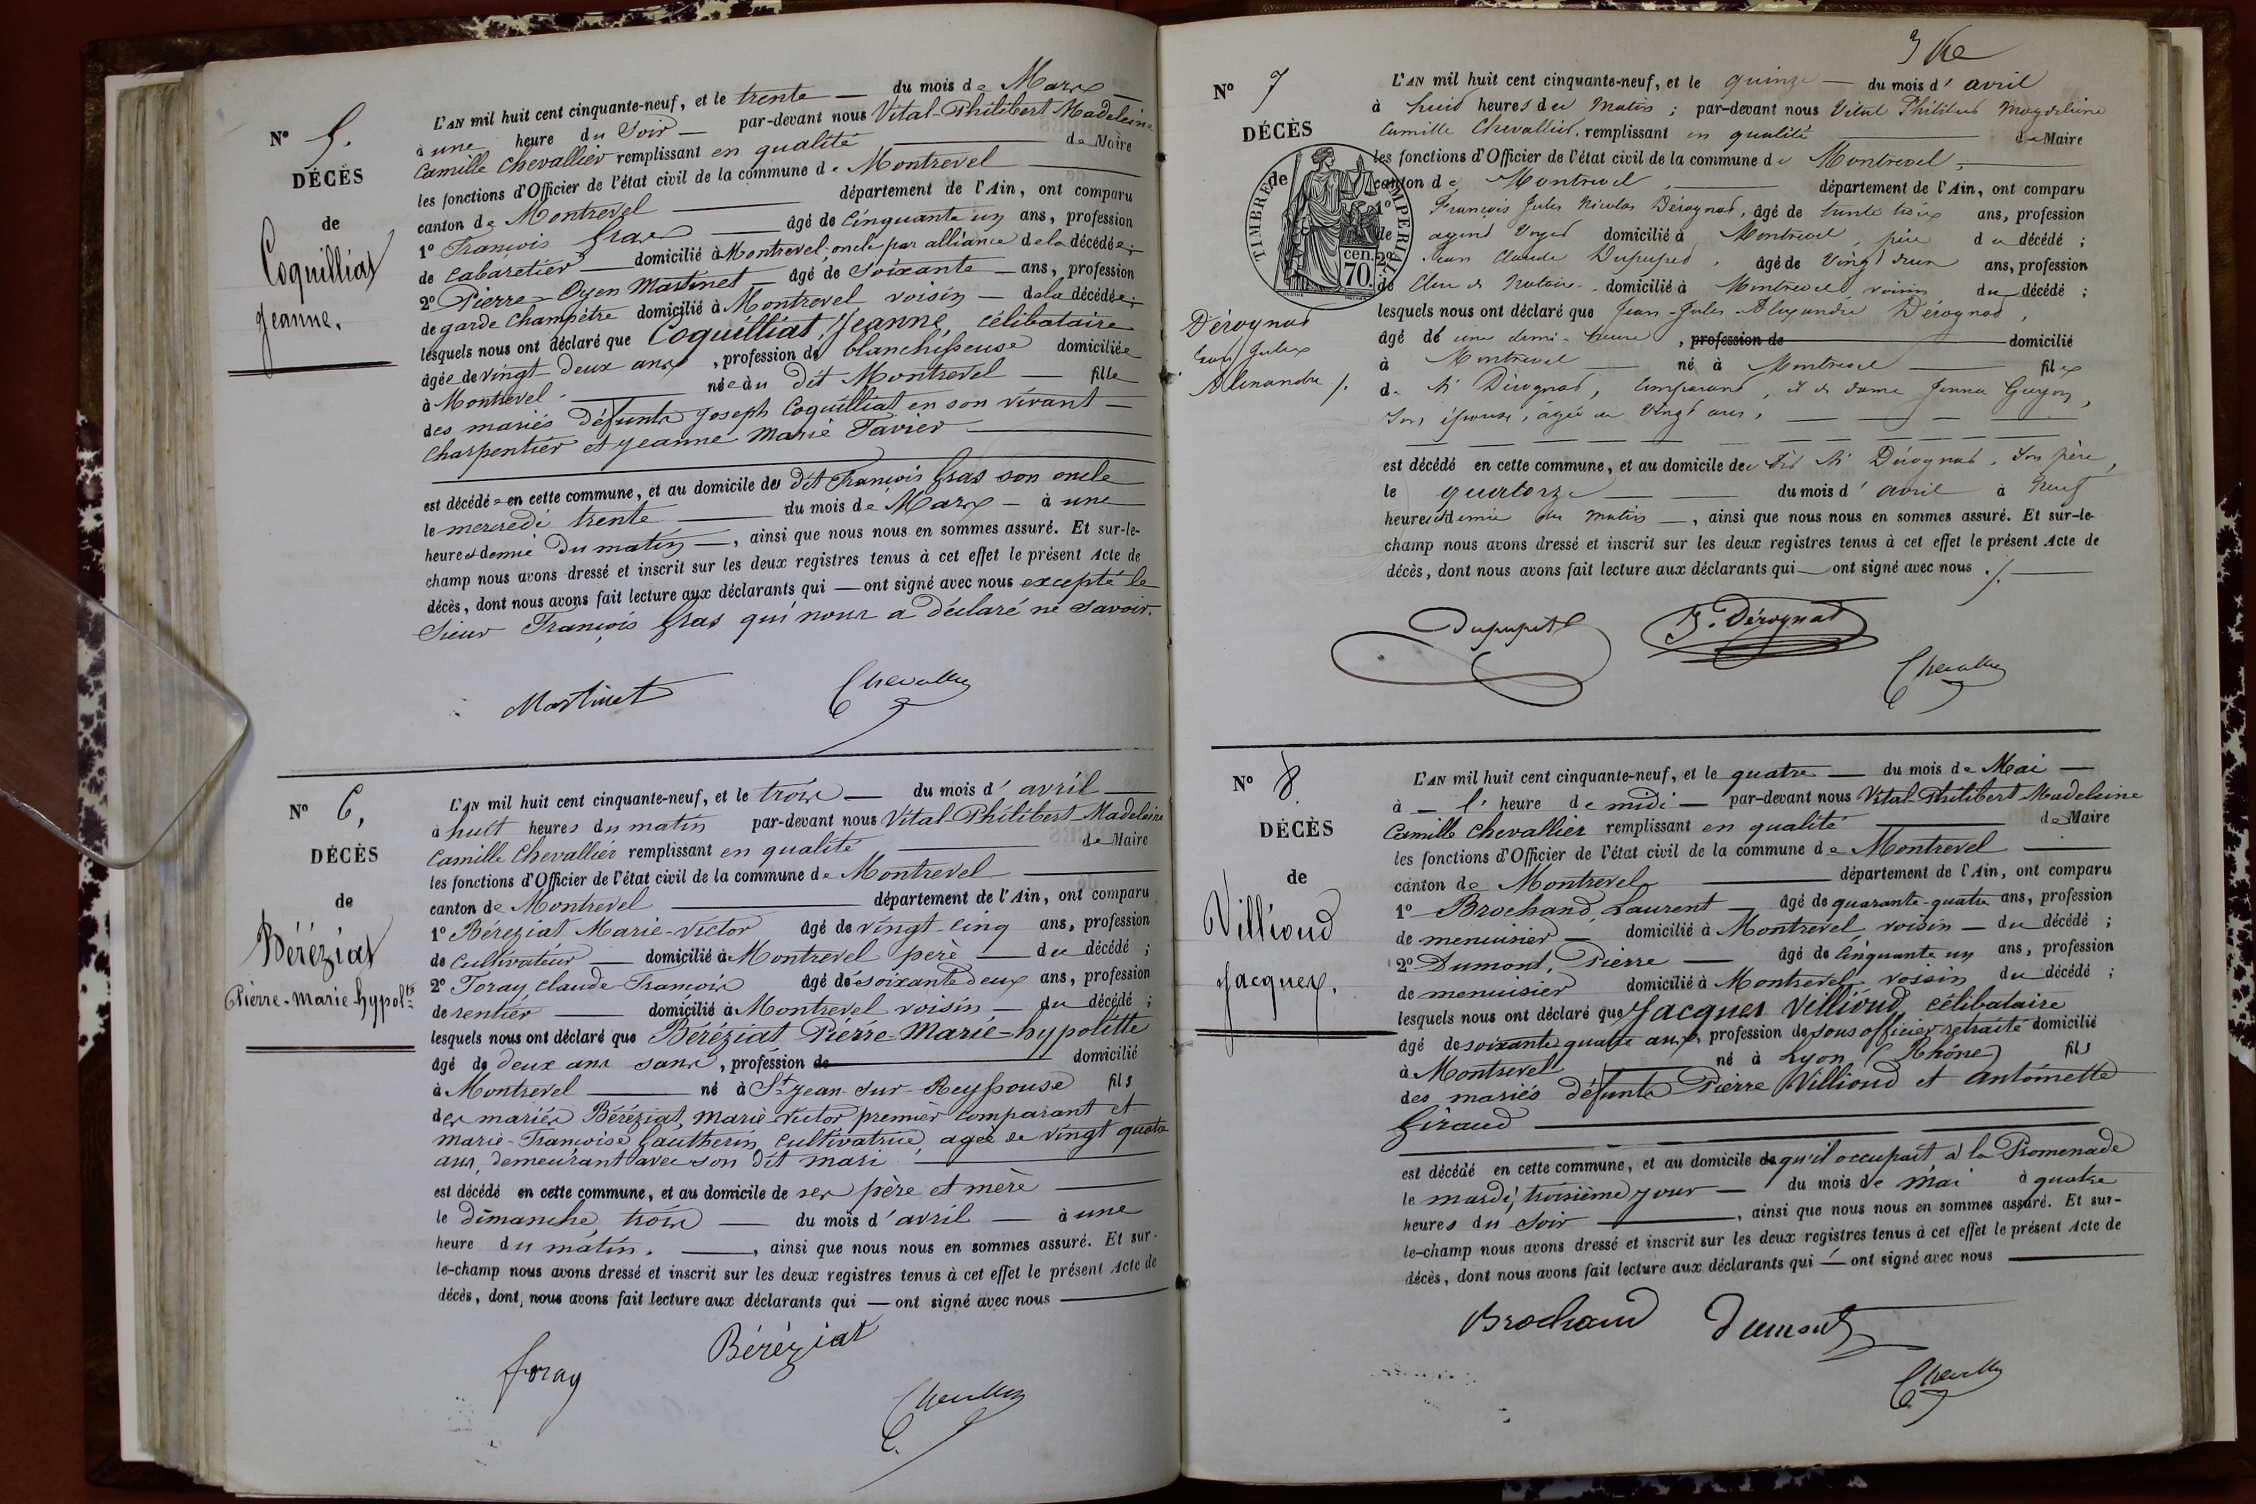 N° 5.
DÉCÈS
de
Coquilliat
Jeanne.
L'AN mil huit cent cinquante-neuf, et le trente — du mois de Mars —
à une heure du Soir — par-devant nous Vital-Philibert Madeleine
Camille Chevallier remplissant en qualité — de Maire
les fonctions d'Officier de l'état civil de la commune de Montrevel —
canton de Montrevel — département de l'Ain, ont comparu
1° François Gras — âgé de Cinquante un ans, profession
de Cabaretier — domicilié à Montrevel, oncle par alliance de la décédée;
2° Pierre-Oyen Martinet — âgé de Soixante — ans, profession
de garde Champêtre domicilié à Montrevel voisin — de la décédée;
lesquels nous ont déclaré que Coquilliat, Jeanne, célibataire
âgée de vingt deux ans, profession de blanchisseuse domiciliée
à Montrevel. — née au dit Montrevel — fille
des mariés défunts Joseph Coquilliat en son vivant —
Charpentier et Jeanne Marie Tavier —
est décédée en cette commune, et au domicile de dit François Gras son oncle
le mercredi trente — du mois de Mars — à une
heure et demie du matin —, ainsi que nous nous en sommes assuré. Et sur-le-
champ nous avons dressé et inscrit sur les deux registres tenus à cet effet le présent Acte de
décès, dont nous avons fait lecture aux déclarants qui — ont signé avec nous excepté le
Sieur François Gras qui nous a déclaré ne savoir.
Martinet Chevallier
N° 6,
DÉCÈS
de
Béréziat
Pierre-marie-hypolte
L'AN mil huit cent cinquante-neuf, et le trois — du mois d'avril —
à huit heures du matin par-devant nous Vital-Philibert-Madeleine
Camille Chevallier remplissant en qualité — de Maire
les fonctions d'Officier de l'état civil de la commune de Montrevel —
canton de Montrevel — département de l'Ain, ont comparu
1° Béréziat Marie-Victor âgé de vingt-cinq ans, profession
de Cultivateur — domicilié à Montrevel père — du décédé ;
2° Foray Claude-François âgé de soixante deux ans, profession
de rentier — domicilié à Montrevel voisin — du décédé ;
lesquels nous ont déclaré que Béréziat Pierre-Marie-hypolitte
âgé de deux ans sans, profession de — domicilié
à Montrevel — né à St Jean-sur-Reyssouse fils
des mariés Béréziat, marie victor premier comparant et
marie-Françoise Gautherin, Cultivatrice, agée de vingt quatre
ans, demeurant avec son dit mari —
est décédé en cette commune, et au domicile de ses père et mère —
le dimanche, trois — du mois d'avril — à une
heure du matin. —, ainsi que nous nous en sommes assuré. Et sur-
le-champ nous avons dressé et inscrit sur les deux registres tenus à cet effet le présent Acte de
décès, dont nous avons fait lecture aux déclarants qui — ont signé avec nous —
foray Béréziat
Chevallier
N° 7
DÉCÈS
de
TIMBRE IMPERIAL
70. cen.
Dérognat
Jean Jules
Alexandre
L'AN mil huit cent cinquante-neuf, et le quinze — du mois d'avril
à huit heures du matin ; par-devant nous Vital Philibert Magdeleine
Camille Chevallier, remplissant en qualité — de Maire
les fonctions d'Officier de l'état civil de la commune de Montrevel, —
canton de Montrevel, — département de l'Ain, ont comparu
1° François Jules Nicolas Dérognat, âgé de trente trois ans, profession
de agent Voyer domicilié à Montrevel, père du décédé ;
2° Jean Claude Dupupet, âgé de Vingt d'un ans, profession
de Clerc de Notaire, domicilié à Montrevel, voisin du décédé ;
lesquels nous ont déclaré que Jean-Jules-Alexandre Dérognat,
âgé de une demi-heure, profession de — domicilié
à Montrevel — né à Montrevel — fils
de Sr Dérognat, comparant, et de dame Jenna Guyon,
son épouse, âgée de Vingt ans, —
est décédé en cette commune, et au domicile de dit Sr Dérognat, son père,
le quatorze — du mois d'avril à Neuf
heures et demie du matin —, ainsi que nous nous en sommes assuré. Et sur-le-
champ nous avons dressé et inscrit sur les deux registres tenus à cet effet le présent Acte de
décès, dont nous avons fait lecture aux déclarants qui — ont signé avec nous ./. —
Dupupet J. Dérognat
Chevallier
N° 8.
DÉCÈS
de
Villioud
Jacques.
L'AN mil huit cent cinquante-neuf, et le quatre — du mois de Mai —
à — l'heure de midi — par-devant nous Vital-Philibert-Madeleine
Camille Chevallier remplissant en qualité — de Maire
les fonctions d'Officier de l'état civil de la commune de Montrevel —
canton de Montrevel — département de l'Ain, ont comparu
1° Brochand, Laurent — âgé de quarante-quatre ans, profession
de menuisier — domicilié à Montrevel voisin — du décédé ;
2° Dumont, Pierre — âgé de Cinquante un ans, profession
de menuisier domicilié à Montrevel, voisin du décédé ;
lesquels nous ont déclaré que Jacques Villioud, célibataire
âgé de soixante quatre ans, profession de sous officier retraité domicilié
à Montrevel — né à Lyon (Rhône) fils
des mariés défunts Pierre Villioud et Antoinette
Giraud —
est décédé en cette commune, et au domicile de qu'il occupait à la Promenade
le mardi, troisième jour — du mois de mai à quatre
heures du Soir —, ainsi que nous nous en sommes assuré. Et sur-
le-champ nous avons dressé et inscrit sur les deux registres tenus à cet effet le présent Acte de
décès, dont nous avons fait lecture aux déclarants qui — ont signé avec nous —
Brochand Dumont
Chevallier